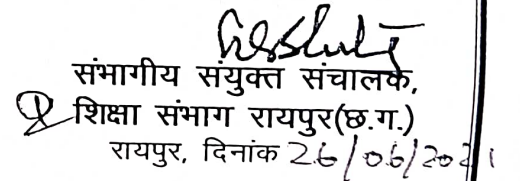 संभागीय संयुक्त संचालक,
शिक्षा संभाग रायपुर(छ.ग.)
रायपुर, दिनांक 26/06/2021